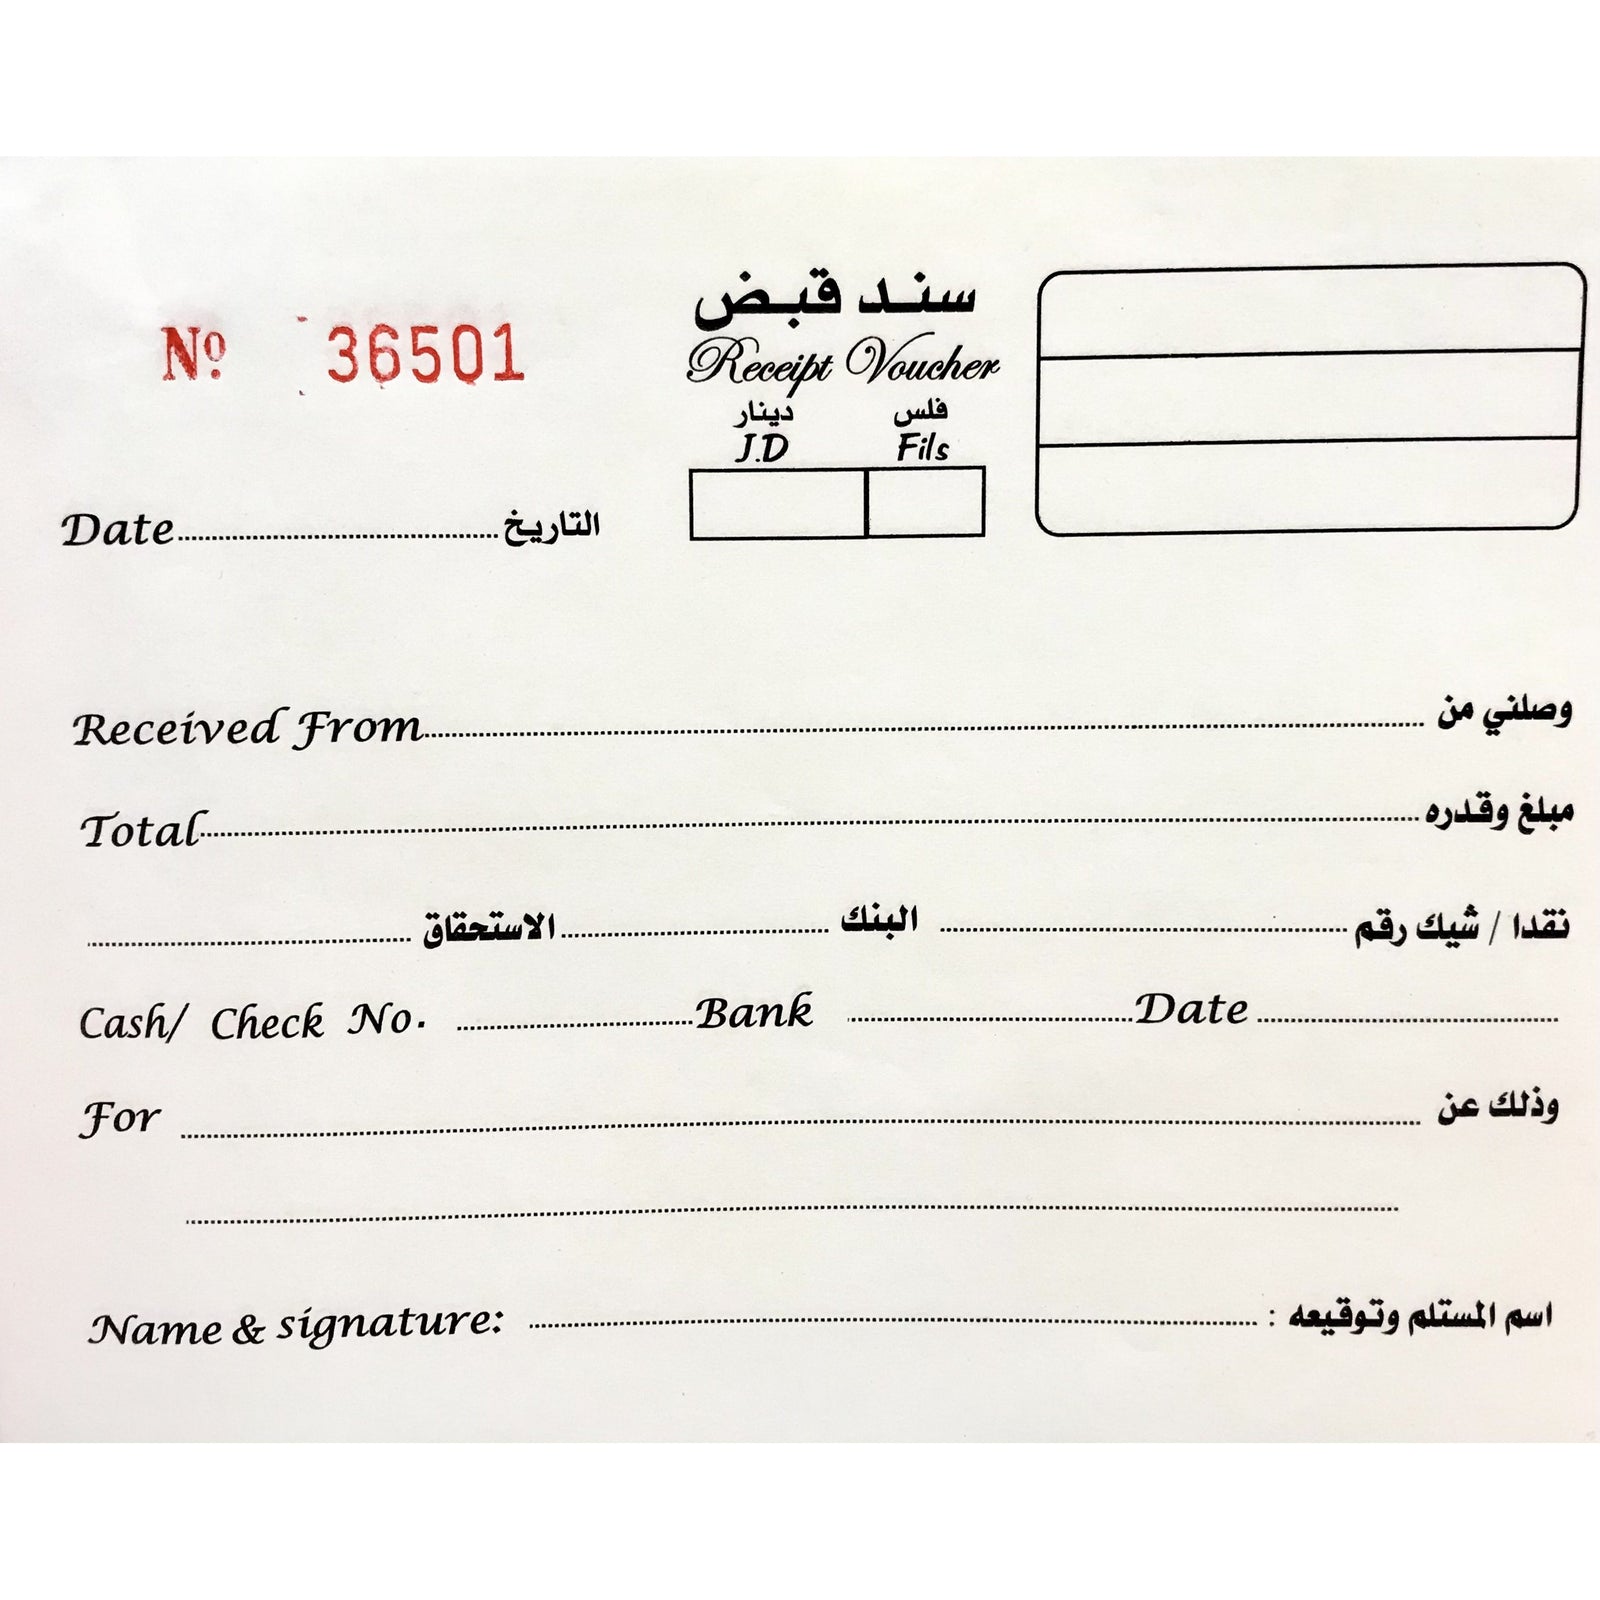 سند قبض
Receipt Voucher
Nº 36501
دينار فلس
J.D Fils
Date التاريخ
Received From وصلني من
Total مبلغ وقدره
نقدا / شيك رقم البنك الاستحقاق
Cash/ Check No. Bank Date
For وذلك عن
Name & signature: اسم المستلم وتوقيعه :